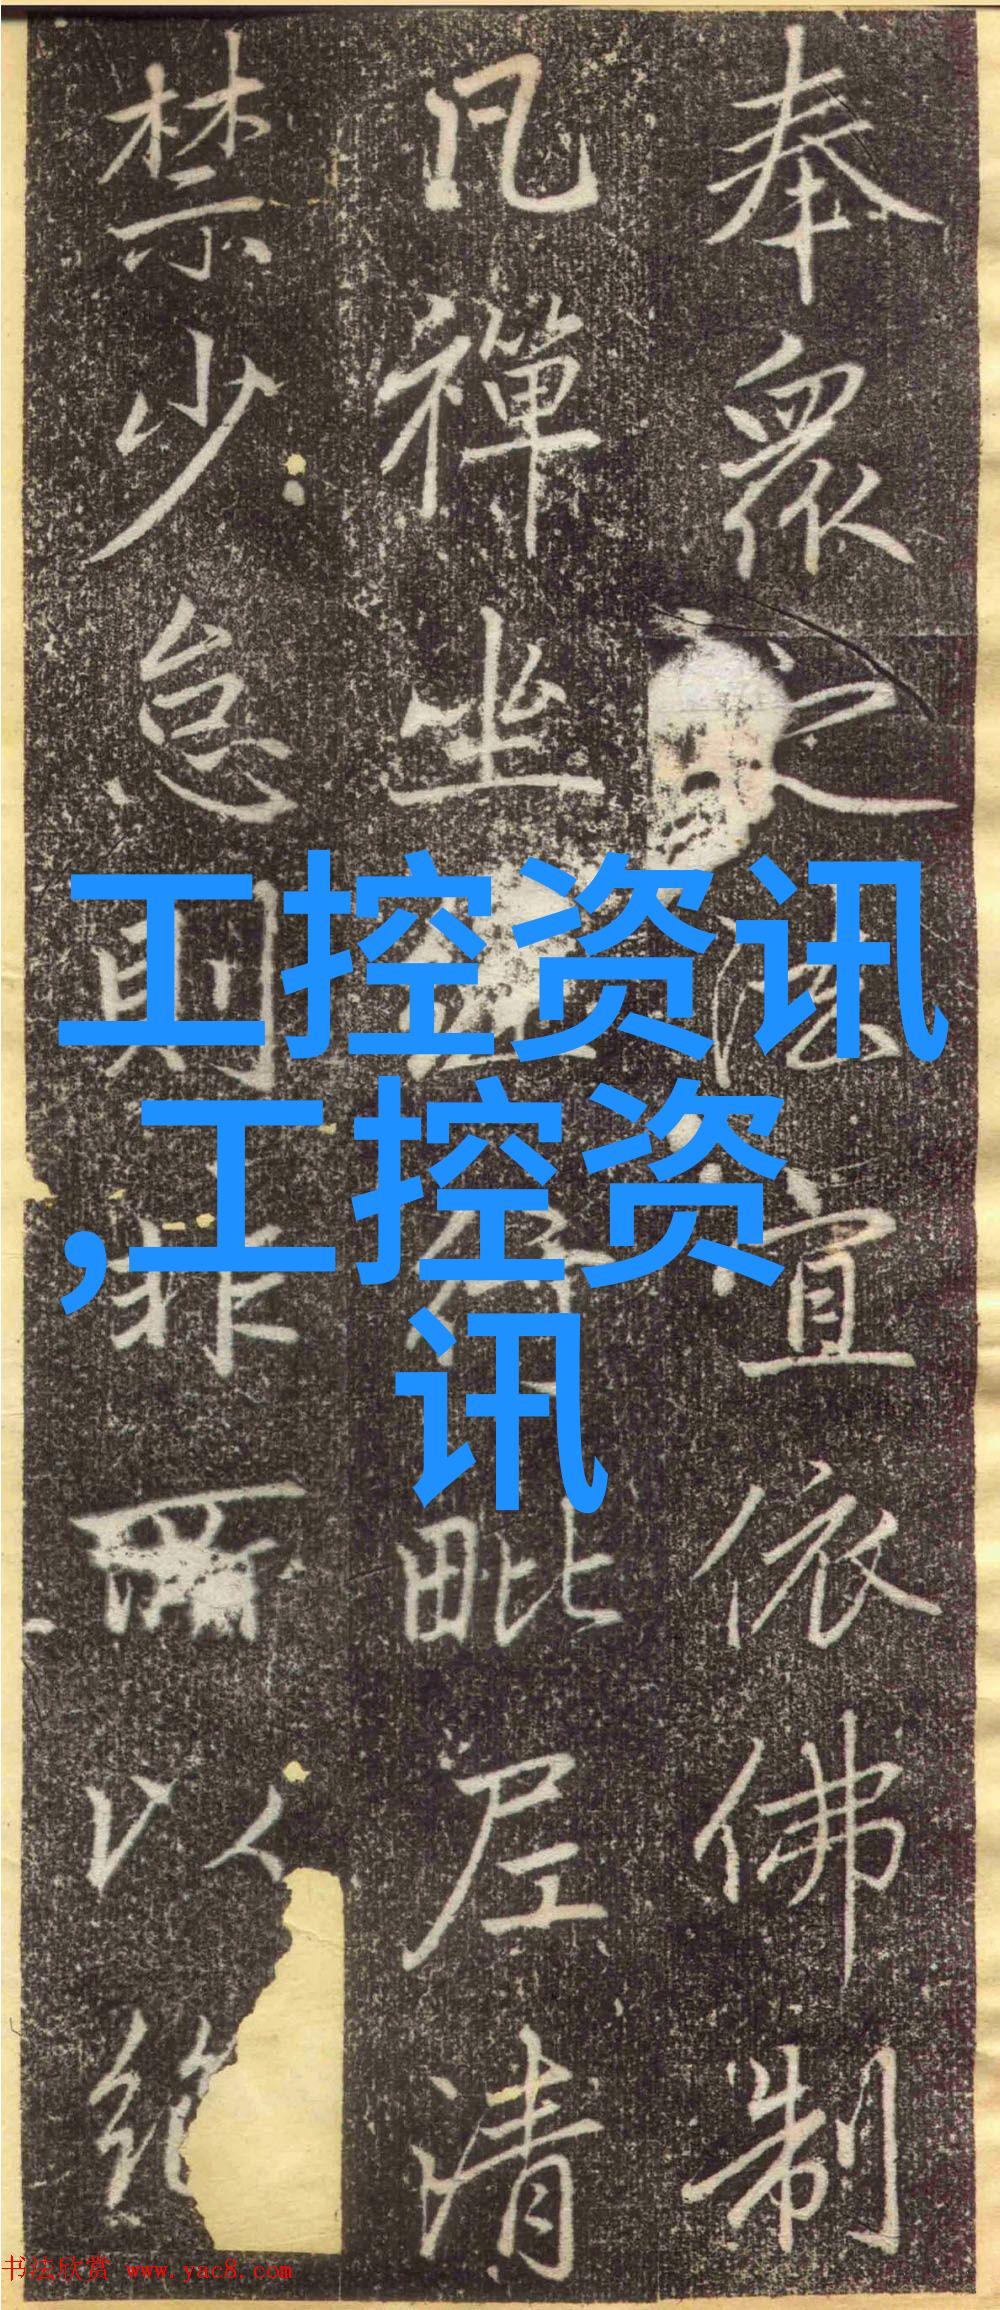 奉眾之法宜依佛制
凡禪坐
毗尼清
禁少怠則非所以
絕
工控资讯
,工控资
讯
书法欣赏 www.yac8.com